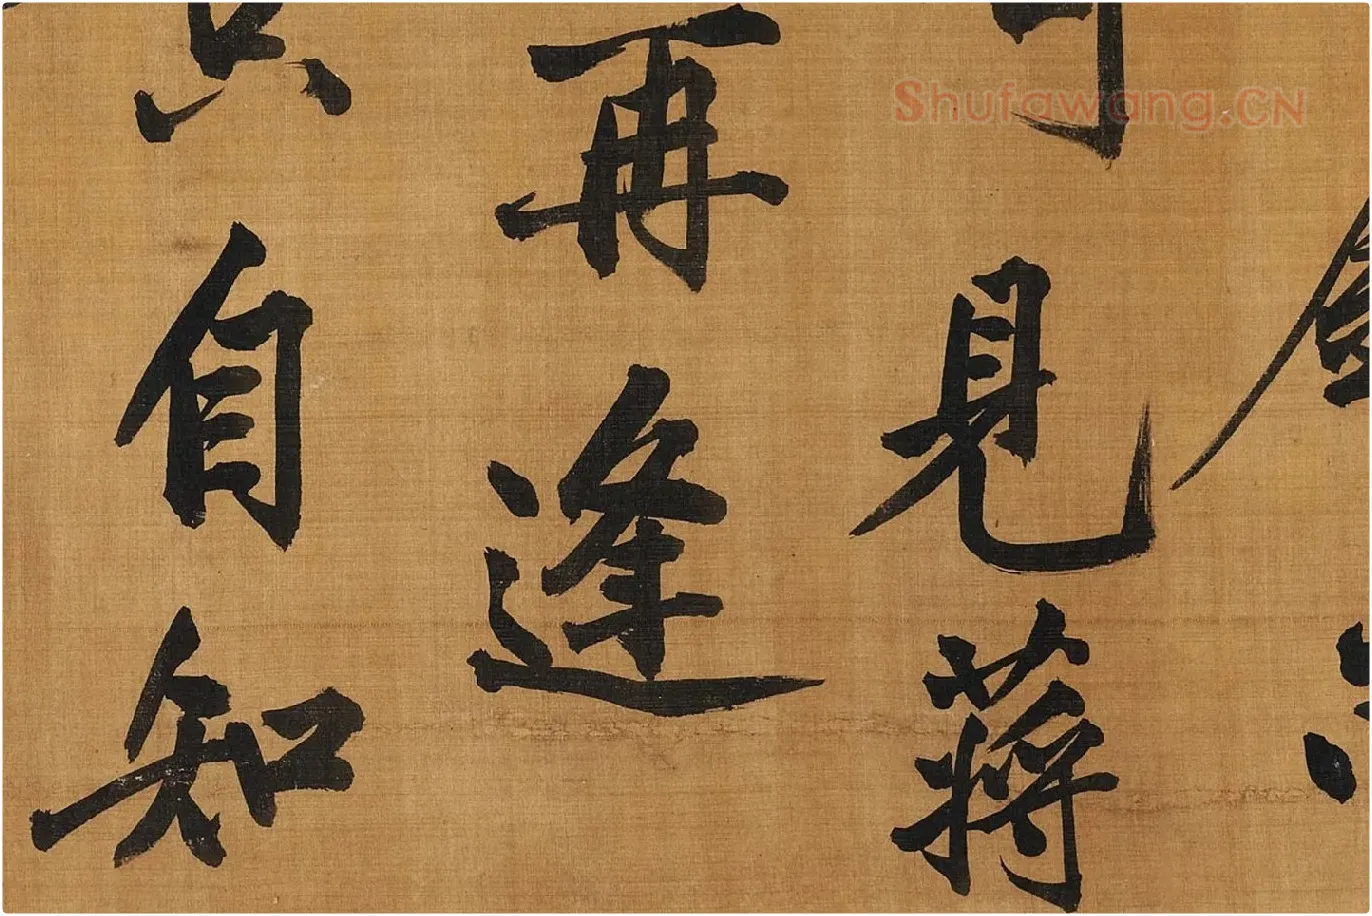 見蔣
再逢
自知
Shufawang.CN